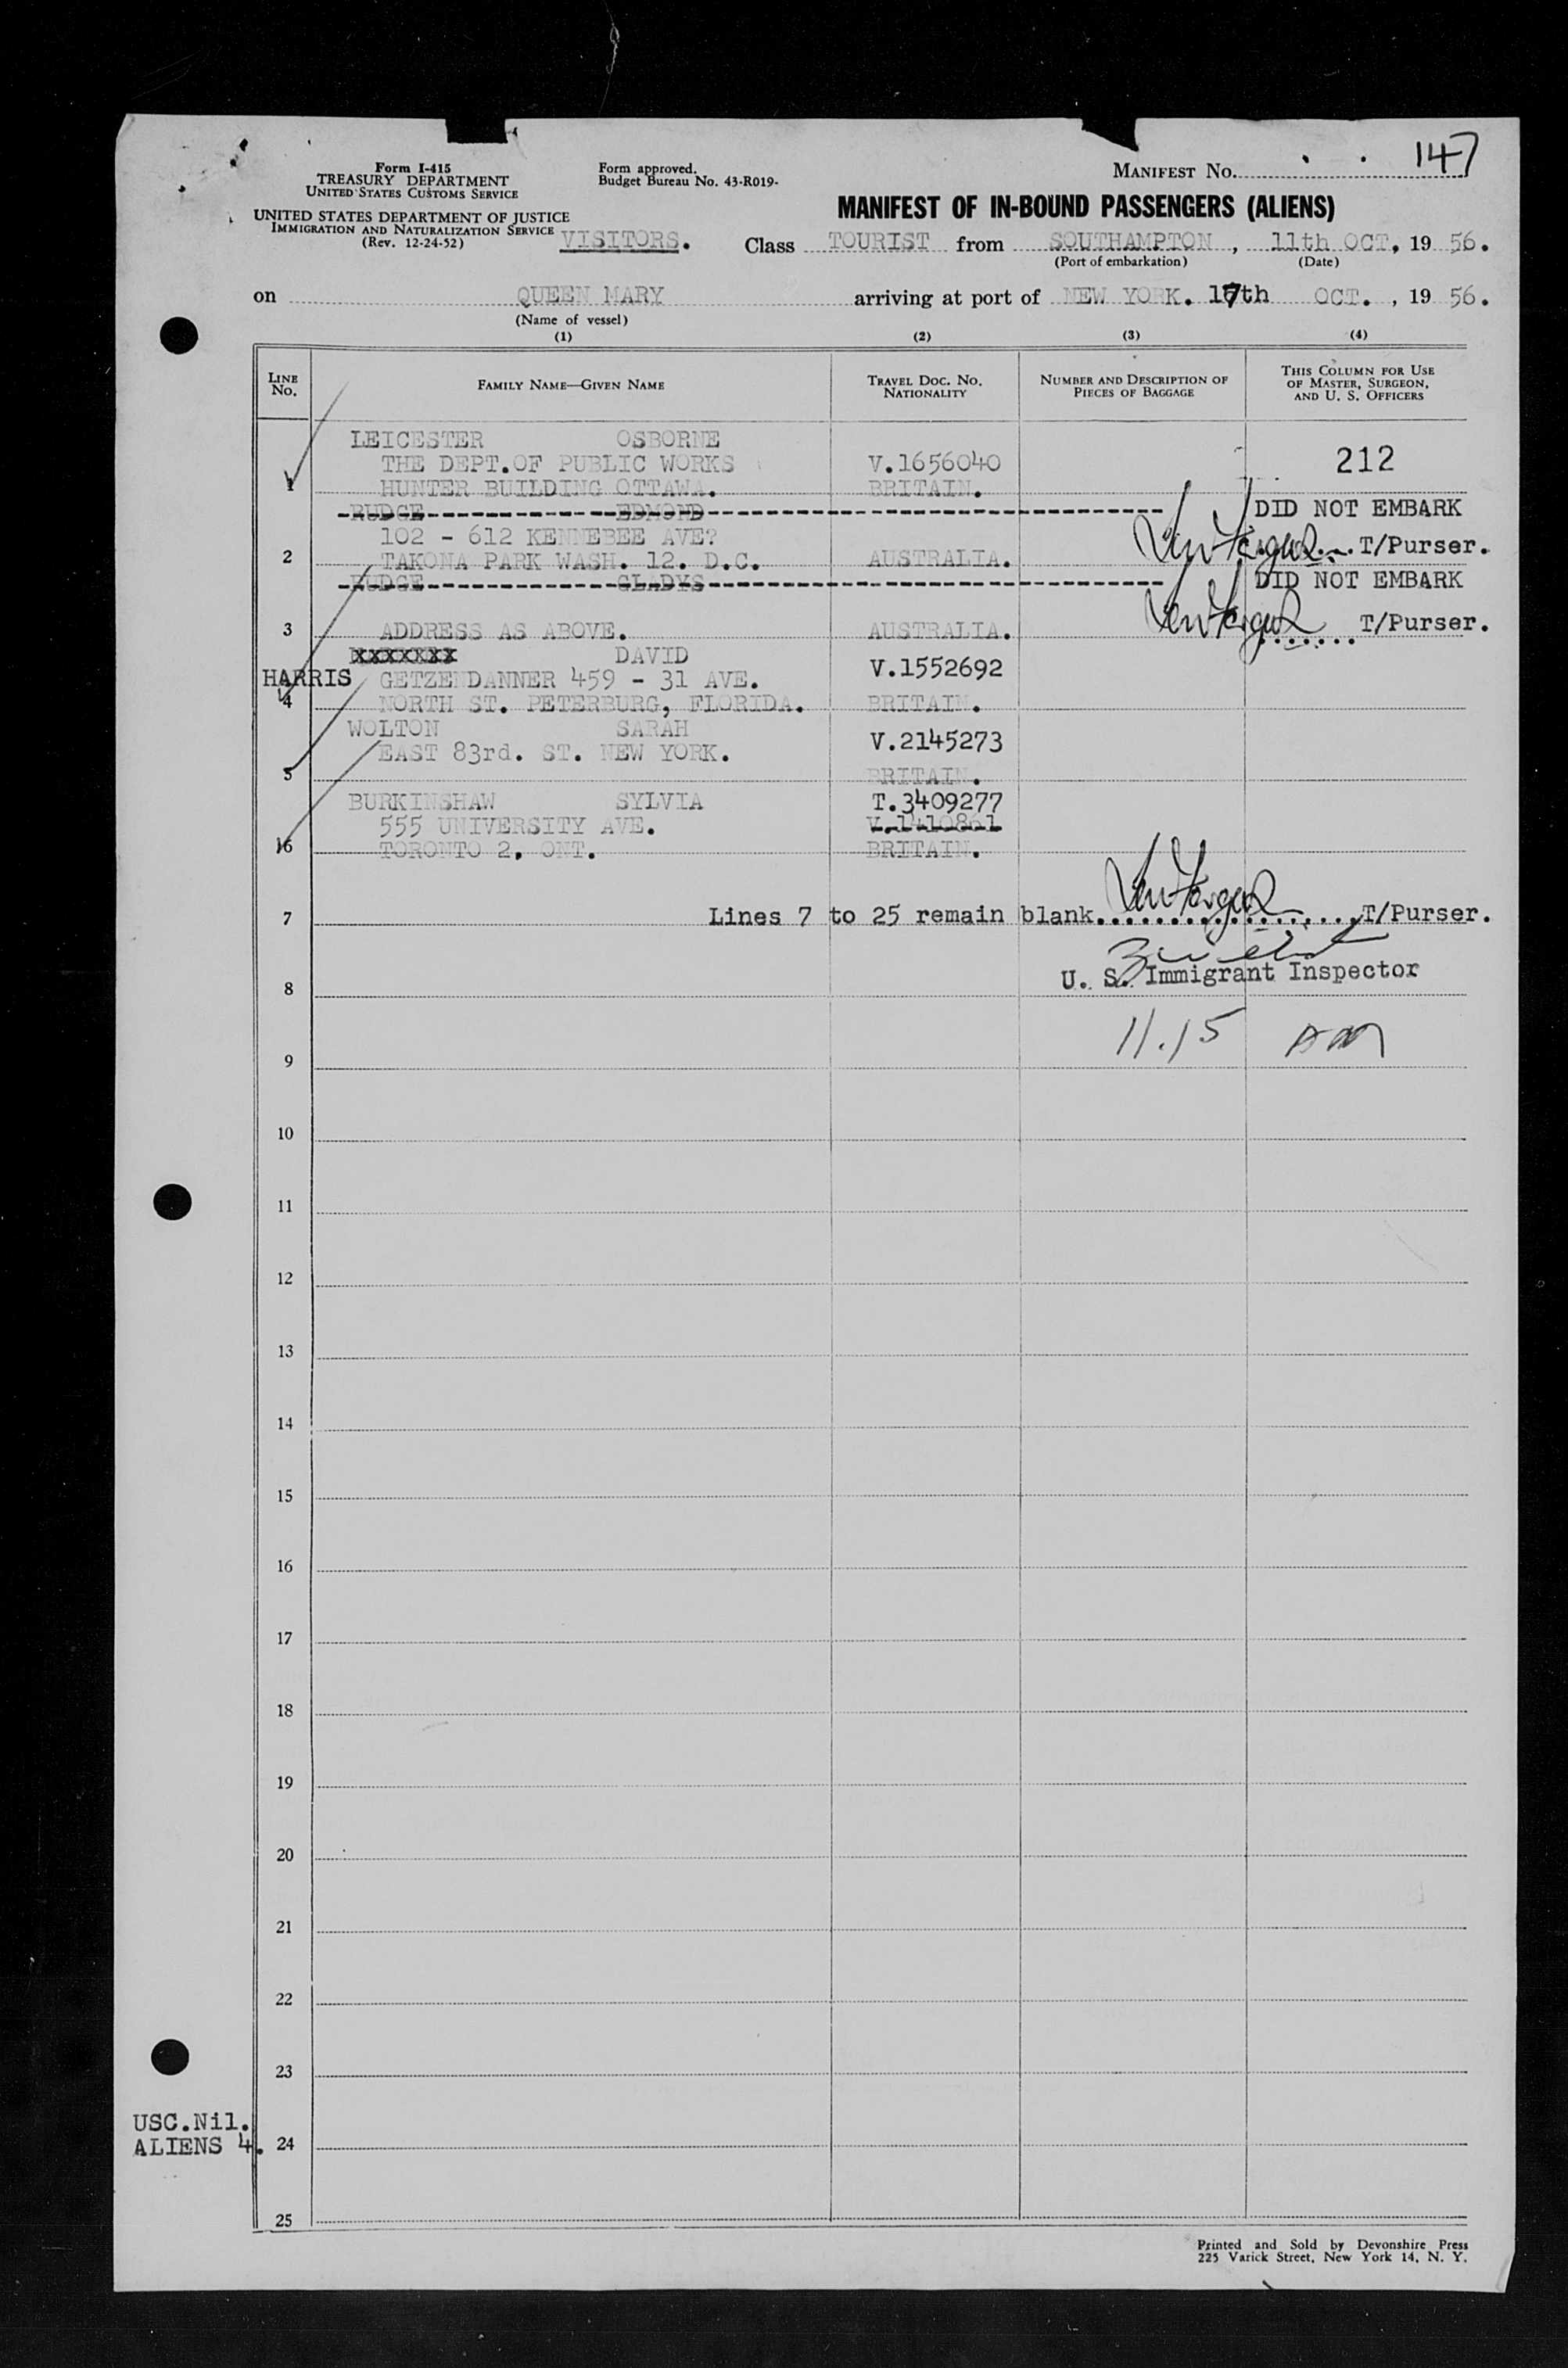 147
Form I-415
TREASURY DEPARTMENT
UNITED STATES CUSTOMS SERVICE
Form approved.
Budget Bureau No. 43-R019-
MANIFEST No.
UNITED STATES DEPARTMENT OF JUSTICE
IMMIGRATION AND NATURALIZATION SERVICE
(Rev. 12-24-52)
MANIFEST OF IN-BOUND PASSENGERS (ALIENS)
VISITORS. Class TOURIST from SOUTHAMPTON, 11th OCT, 19 56.
(Port of embarkation) (Date)
on QUEEN MARY arriving at port of NEW YORK. 17th OCT., 19 56.
(Name of vessel)
(1) (2) (3) (4)
LINE No. FAMILY NAME—GIVEN NAME TRAVEL DOC. NO. NATIONALITY NUMBER AND DESCRIPTION OF PIECES OF BAGGAGE THIS COLUMN FOR USE OF MASTER, SURGEON, AND U. S. OFFICERS
LEICESTER OSBORNE
THE DEPT.OF PUBLIC WORKS V.1656040 212
1 HUNTER BUILDING OTTAWA. BRITAIN.
RUDGE EDMOND DID NOT EMBARK
102 - 612 KENNEBEE AVE?
T/Purser.
2 TAKOMA PARK WASH. 12. D.C. AUSTRALIA.
RUDGE GLADYS DID NOT EMBARK
T/Purser.
3 ADDRESS AS ABOVE. AUSTRALIA.
XXXXXXX DAVID
HARRIS GETZENDANNER 459 - 31 AVE. V.1552692
4 NORTH ST. PETERBURG, FLORIDA. BRITAIN.
WOLTON SARAH
EAST 83rd. ST. NEW YORK. V.2145273
5 BRITAIN.
BURKINSHAW SYLVIA T.3409277
555 UNIVERSITY AVE. V.1410861
6 TORONTO 2, ONT. BRITAIN.
7 Lines 7 to 25 remain blank. T/Purser.
U. S. Immigrant Inspector
8
11.15 AM
9
10
11
12
13
14
15
16
17
18
19
20
21
22
23
USC.Nil.
ALIENS 4. 24
25
Printed and Sold by Devonshire Press
225 Varick Street, New York 14, N. Y.